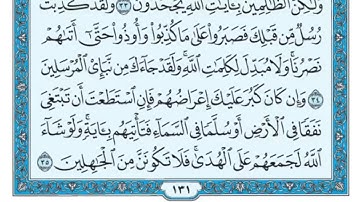 وَلَٰكِنَّ ٱلظَّٰلِمِينَ بِـَٔايَٰتِ ٱللَّهِ يَجْحَدُونَ ٣٣ وَلَقَدْ كُذِّبَتْ
رُسُلٌ مِّن قَبْلِكَ فَصَبَرُوا۟ عَلَىٰ مَا كُذِّبُوا۟ وَأُوذُوا۟ حَتَّىٰٓ أَتَىٰهُمْ
نَصْرُنَا وَلَا مُبَدِّلَ لِكَلِمَٰتِ ٱللَّهِ وَلَقَدْ جَآءَكَ مِن نَّبَإِى۟ ٱلْمُرْسَلِينَ
٣٤ وَإِن كَانَ كَبُرَ عَلَيْكَ إِعْرَاضُهُمْ فَإِنِ ٱسْتَطَعْتَ أَن تَبْتَغِىَ
نَفَقًا فِى ٱلْأَرْضِ أَوْ سُلَّمًا فِى ٱلسَّمَآءِ فَتَأْتِيَهُم بِـَٔايَةٍ وَلَوْ شَآءَ
ٱللَّهُ لَجَمَعَهُمْ عَلَى ٱلْهُدَىٰ فَلَا تَكُونَنَّ مِنَ ٱلْجَٰهِلِينَ ٣٥
١٣١